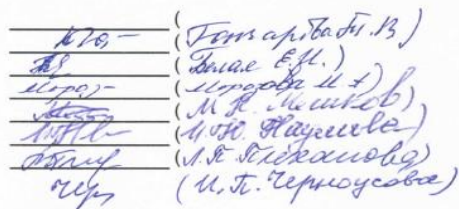 (Гончарова Т.В)
(Белая Е.И.)
Мороз- (Морозова И.А)
(М.Н. Мешков)
(И.Ю. Наумова)
(Л.П. Плеханова)
Чер (И.П. Черноусова)